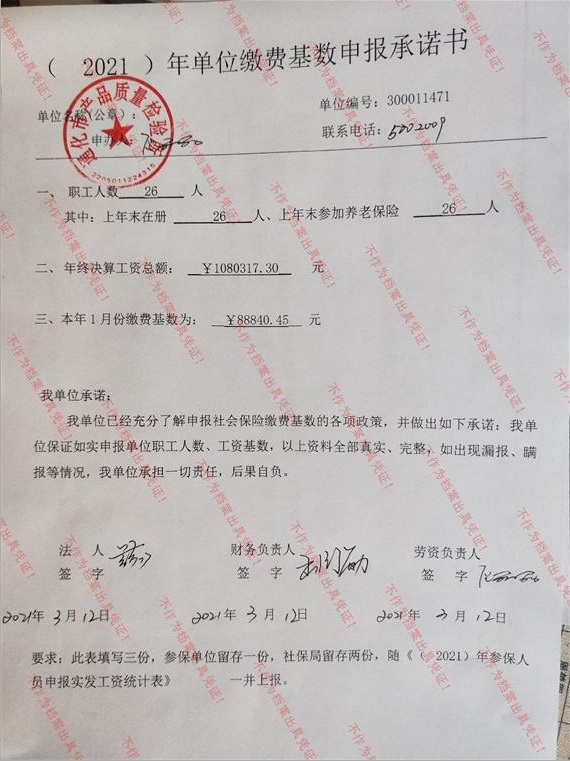 （ 2021 ）年单位缴费基数申报承诺书
单位名称(公章)： 单位编号：300011471
申办人 联系电话：5002009
通化市产品质量检验所
2205011224315
一、 职工人数 26 人
其中：上年末在册 26 人、上年末参加养老保险 26 人
二、年终决算工资总额： ￥1080317.30 元
三、本年1月份缴费基数为： ￥88840.45 元
我单位承诺：
我单位已经充分了解申报社会保险缴费基数的各项政策，并做出如下承诺：我单
位保证如实申报单位职工人数、工资基数，以上资料全部真实、完整，如出现漏报、瞒
报等情况，我单位承担一切责任，后果自负。
法 人 财务负责人 劳资负责人
签 字 签 字 签 字
2021年 3月 12日 2021年 3月 12日 2021年 3月 12日
要求：此表填写三份，参保单位留存一份，社保局留存两份，随《（ 2021）年参保人
员申报实发工资统计表》 一并上报。
不作为档案出具凭证！